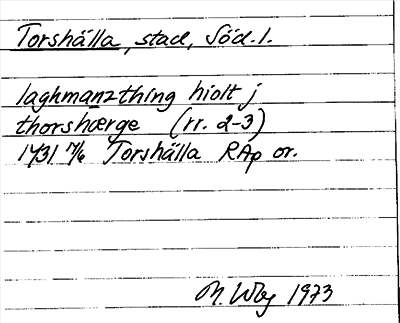 Torshälla, stad, Söd. l.
laghmanzthing hiolt j
thorshærge (rr. 2-3)
1431 11/6 Torshälla RAp or.
M. Wbg 1973